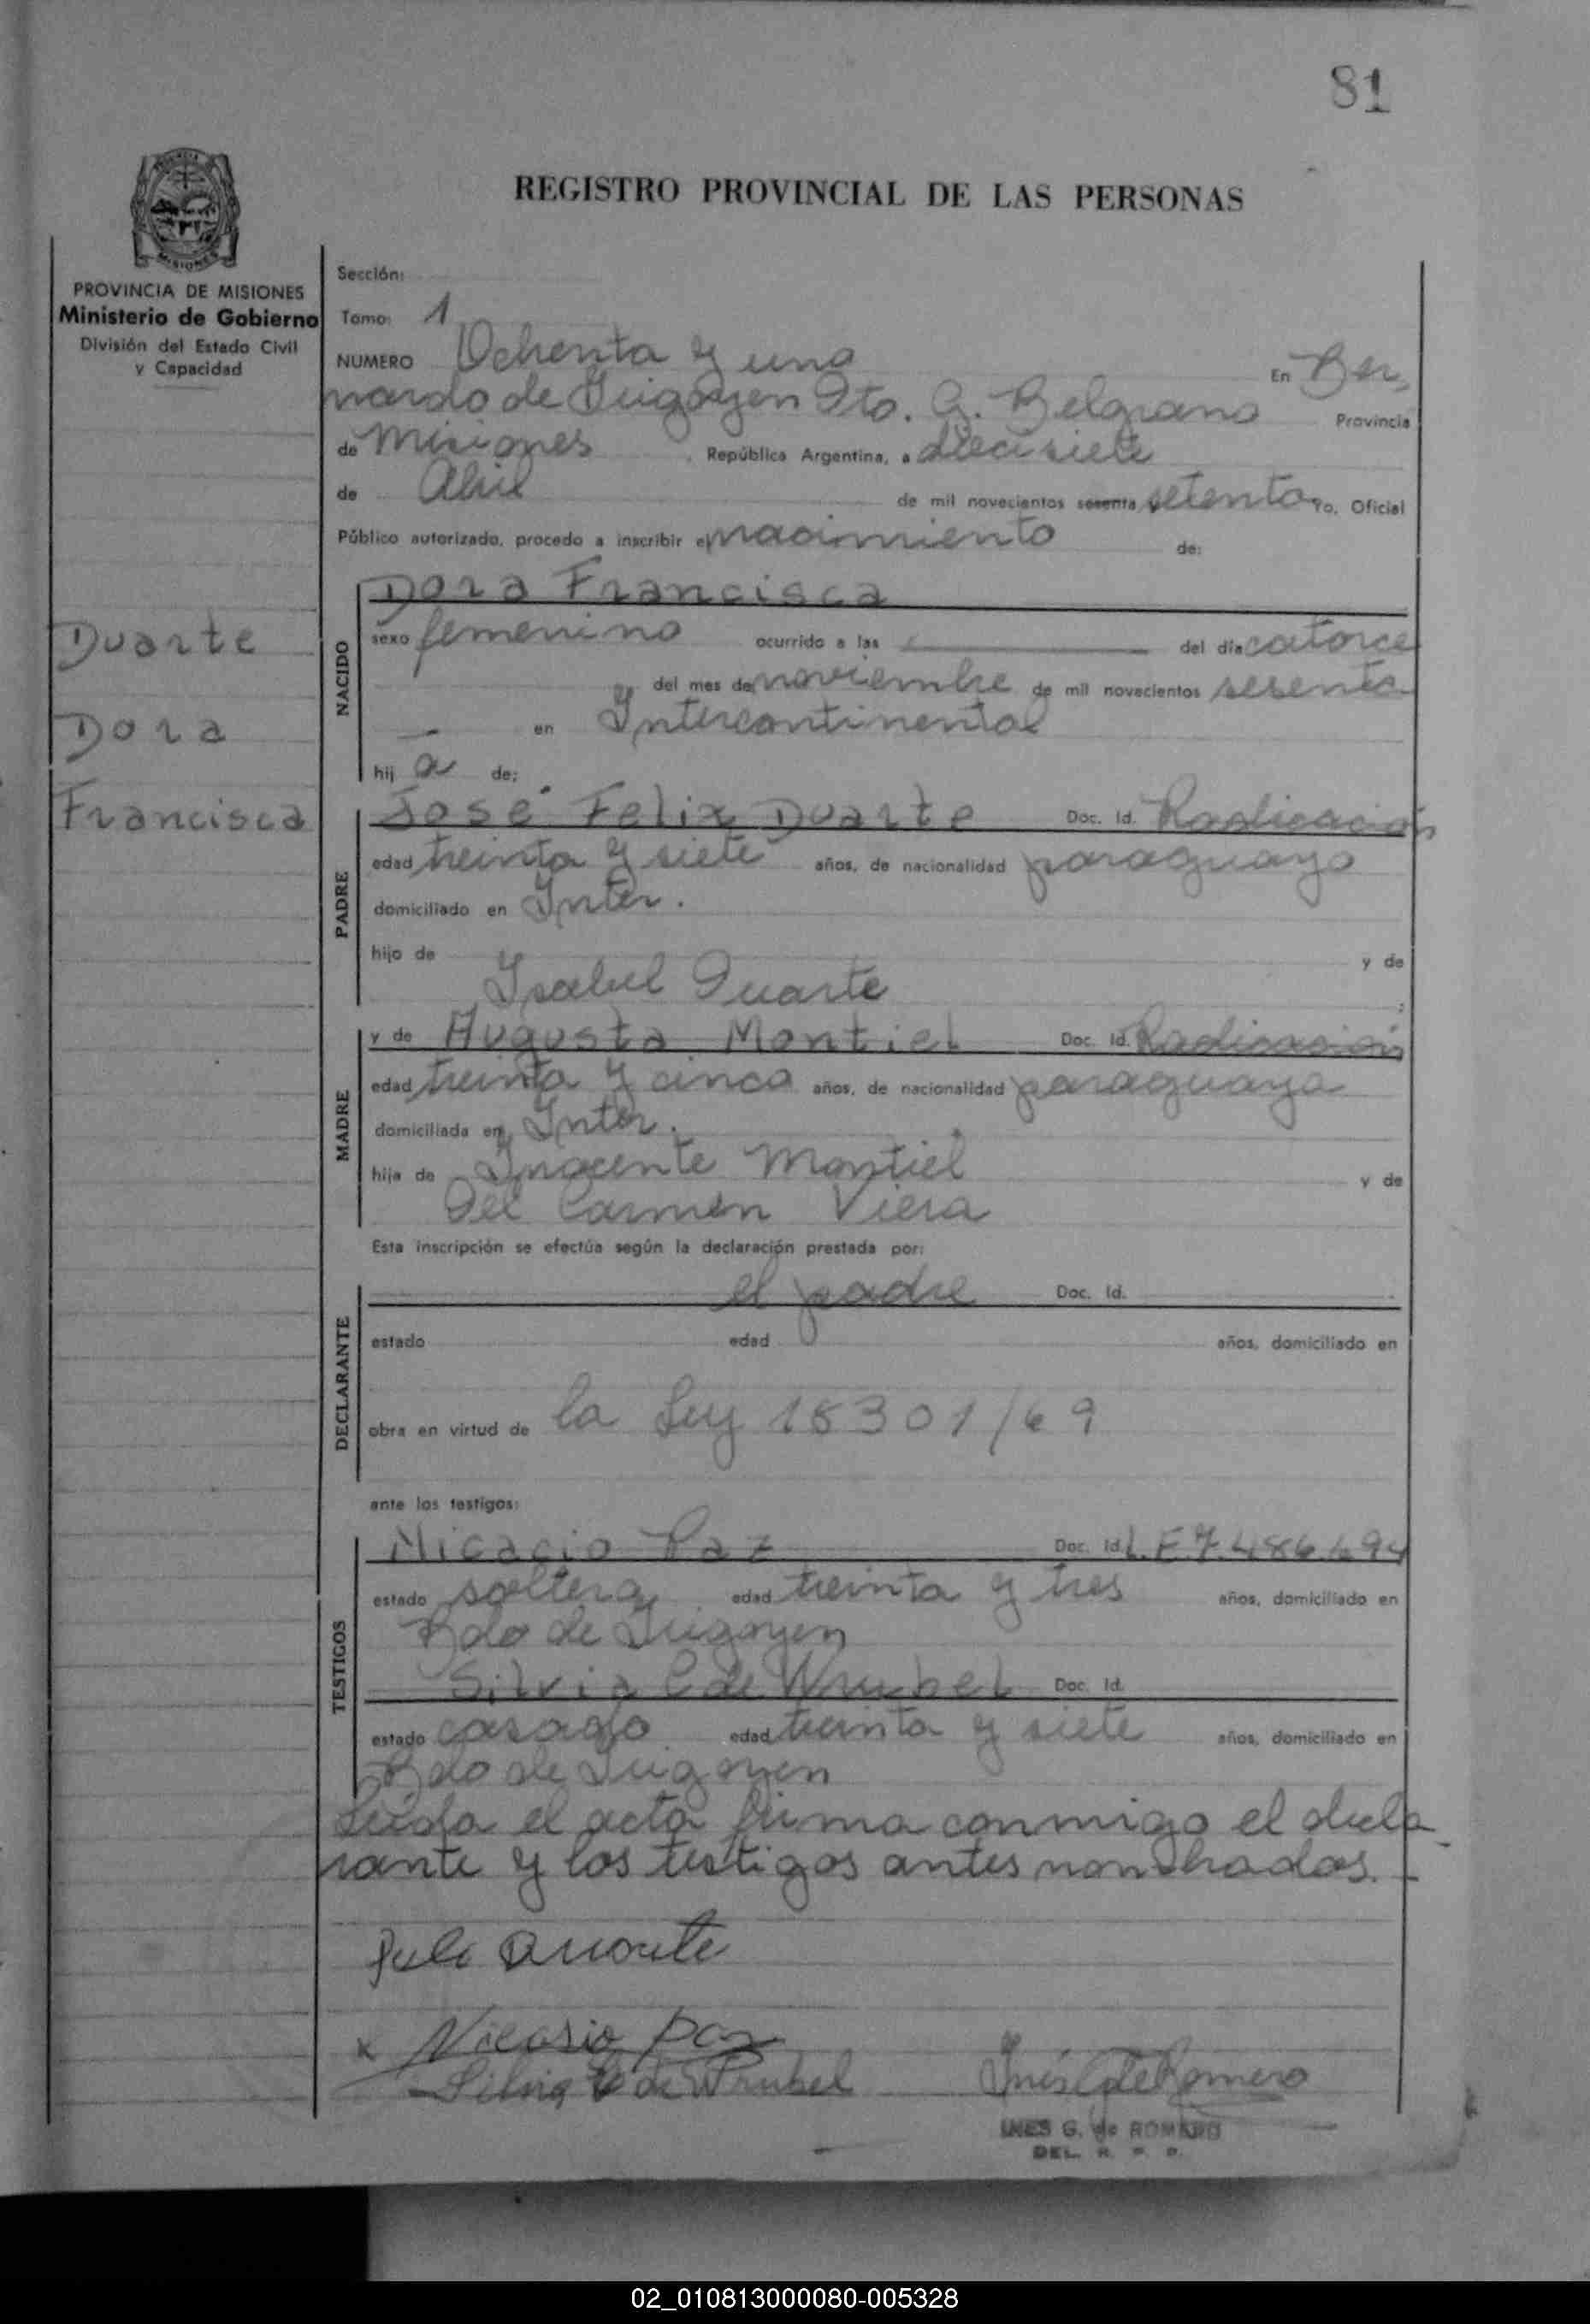 81
REGISTRO PROVINCIAL DE LAS PERSONAS
PROVINCIA DE MISIONES
Ministerio de Gobierno
División del Estado Civil
y Capacidad
Duarte
Dora
Francisca
Sección:
Tomo: 1
NUMERO Ochenta y uno En Ber
nardo de Irigoyen Dto. G. Belgrano Provincia
de Misiones República Argentina, a diecisiete
de Abril de mil novecientos sesenta y setenta Yo, Oficial
Público autorizado, procedo a inscribir el nacimiento de:
NACIDO
Dora Francisca
sexo femenino ocurrido a las del día catorce
del mes de noviembre de mil novecientos sesenta
en Intercontinental
hij a de:
PADRE
José Felix Duarte Doc. Id. Radicación
edad treinta y siete años, de nacionalidad paraguayo
domiciliado en Inter.
hijo de y de
Isabel Duarte
MADRE
y de Augusta Montiel Doc. Id. Radicación
edad treinta y cinco años, de nacionalidad paraguaya
domiciliada en Inter.
hija de Inocente Montiel y de
Del Carmen Viera
Esta inscripción se efectúa según la declaración prestada por:
DECLARANTE
el padre Doc. Id.
estado edad años, domiciliado en
obra en virtud de la Ley 18301/69
ante los testigos:
TESTIGOS
Nicacio Paz Doc. Id. L.E.7.486.694
estado soltero edad treinta y tres años, domiciliado en
Bdo de Irigoyen
Silvia C de Wrubel Doc. Id.
estado casado edad treinta y siete años, domiciliado en
Bdo de Irigoyen
Leída el acta firma conmigo el decla
rante y los testigos antes nombrados.
Duarte
x Nicasio Paz
Silvia C de Wrubel
Inés G de Romero
INES G. de ROMERO
DEL. R. P. P.
02_010813000080-005328